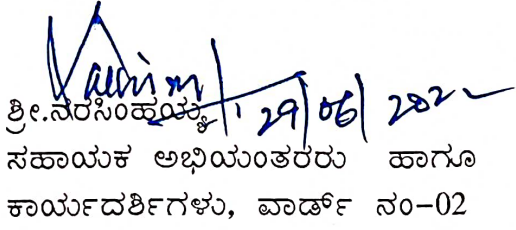 29/06/202
ಶ್ರೀ.ನರಸಿಂಹಯ್ಯ
ಸಹಾಯಕ ಅಭಿಯಂತರರು ಹಾಗೂ
ಕಾರ್ಯದರ್ಶಿಗಳು, ವಾರ್ಡ್ ನಂ-02